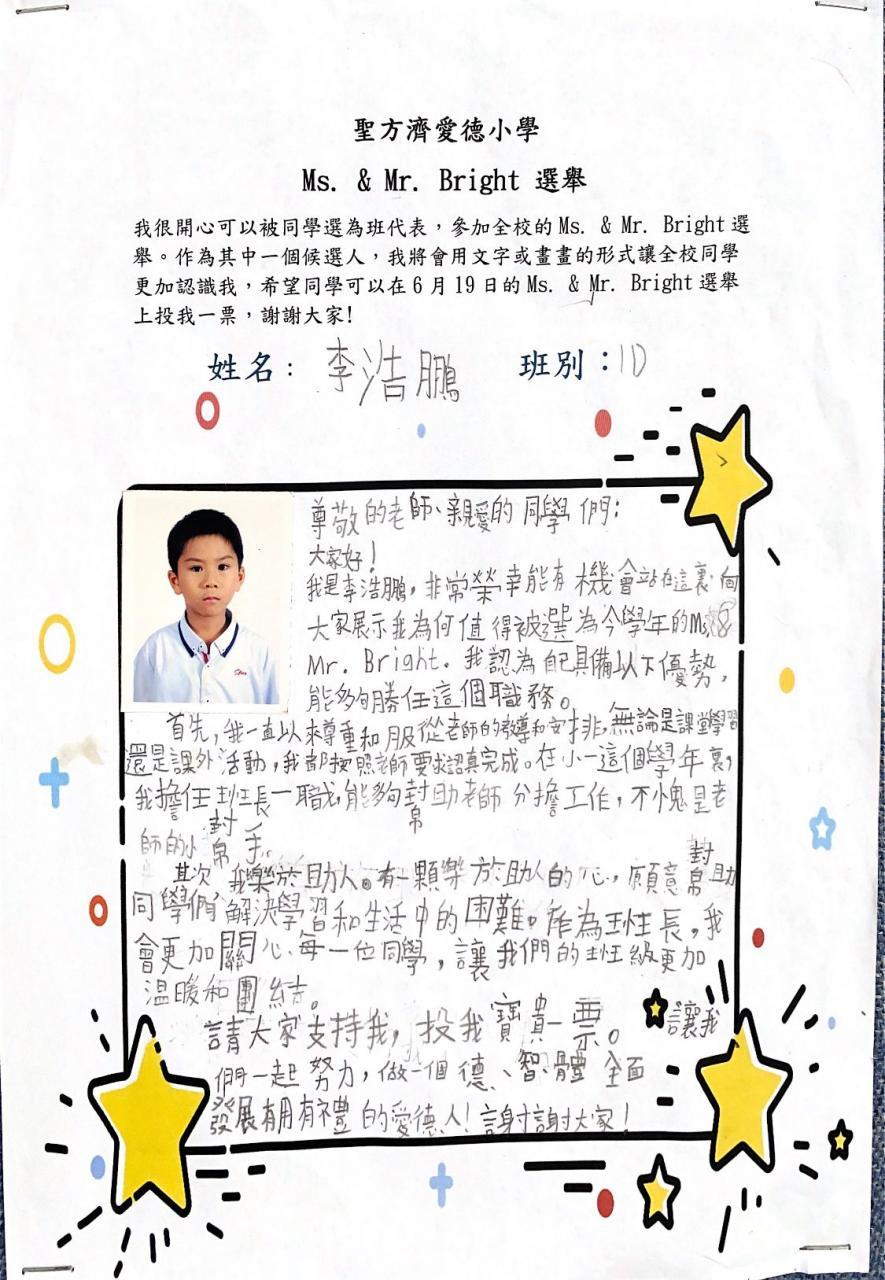 聖方濟愛德小學
Ms. & Mr. Bright 選舉
我很開心可以被同學選為班代表，參加全校的Ms. & Mr. Bright 選
舉。作為其中一個候選人，我將會用文字或畫畫的形式讓全校同學
更加認識我，希望同學可以在6月19日的Ms. & Mr. Bright 選舉
上投我一票，謝謝大家!
姓名： 李浩鵬 班別：1D
尊敬的老師、親愛的同學們：
大家好！
我是李浩鵬，非常榮幸能有機會站在這裏向
大家展示我為何值得被選為今學年的Ms. &
Mr. Bright. 我認為自己具備以下優勢，
能夠勝任這個職務。
首先，我一直以來尊重和服從老師的教導和安排，無論是課堂學習
還是課外活動，我都按照老師要求認真完成。在小一這個學年裏，
我擔任班長一職，能夠幫助老師分擔工作，不愧是老
師的小幫手。
其次，我樂於助人。有一顆樂於助人的心，願意幫助
同學們解決學習和生活中的困難。作為班長，我
會更加關心每一位同學，讓我們的班級更加
溫暖和團結。
請大家支持我，投我寶貴一票。讓我
們一起努力，做一個德、智、體全面
發展有用有禮的愛德人！謝謝大家！